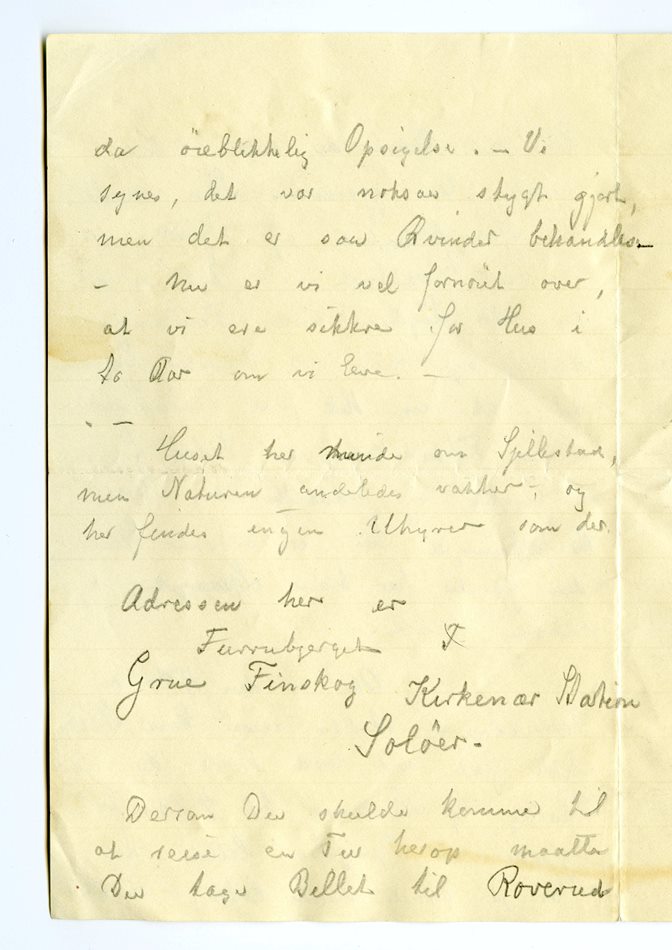 da öieblikkelig Opsigelse. – Vi
synes, det var noksaa stygt gjort,
men det er saa Kvinder behandles –
– Nu er vi vel fornöiet over,
at vi ere sikkre for Hus i
to Aar om vi leve. –
. –
Huset her minde om Sjellestad,
men Naturen anderledes vakker –, og
her findes ingen Uhyrer som der.
Adressen her er
Furruberget
Grue Finskog Kirkenær Station
Solöer –
Dersom De skulde komme til
at reise en Tur herop maatte
De tage Billet til Roverud